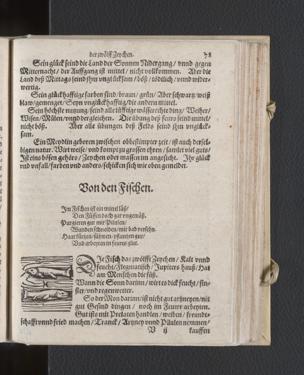 der zwölff Zeychen. 78
Sein glück seind die Land der Sonnen Nidergang / vnnd gegen
Mitternacht / der Auffgang ist mittel / nicht vollkommen. Aber die
Land deß Mittags seind jhm vnglücksam / böß / tödlich / vnnd wider-
wertig.
Sein glückhafftige farben sind / braun / grün / Aber schwartz / weiß
blaw / gemenget / Seyn vnglückhafftig / die andern mittel.
Sein höchste nutzung seind alle
Wisen / vnnd dergleichen. Die übung deß seind mittel /
nicht böß. Aber alle übungen deß Felds seind jhm vnglück-
sam.
Ein Meydlin geborn zwischen obbestimpter zeyt / ist auch derselbigen natur.
Ist eins bösen gehörs / Zeychen oder massen im angesicht. Ihr glück
vnd vnfall / farben vnd anders / schicken sich wie oben gemeldet.
Von den Fischen.
Im Fischen ist ein mittel läß /
Den Füssen doch gar vngemäß.
Purgieren gut mit Pillulen /
Wunden schneiden / mit bad
Haar / pflantzen gut /
Vnd arbeyten in
Die Fisch das zwölfft Zeychen / Kalt vnnd
feucht / Flegmatisch / Jupiters hauß / Hat
am Menschen die füß.
Wann die Sonn darinn / wirt es dick feucht / fin-
ster / vnd regenwetter.
So der Mon darinn / ist nicht gut artzneyen / mit
gut Gesind dingen / noch im Feuwr arbeyten.
Gut ist mit Prelaten handlen / weiben / freund-
schafft vnnd fried machen / Tranck / Artzney vnnd Pillulen nemmen /
V ij kauffen